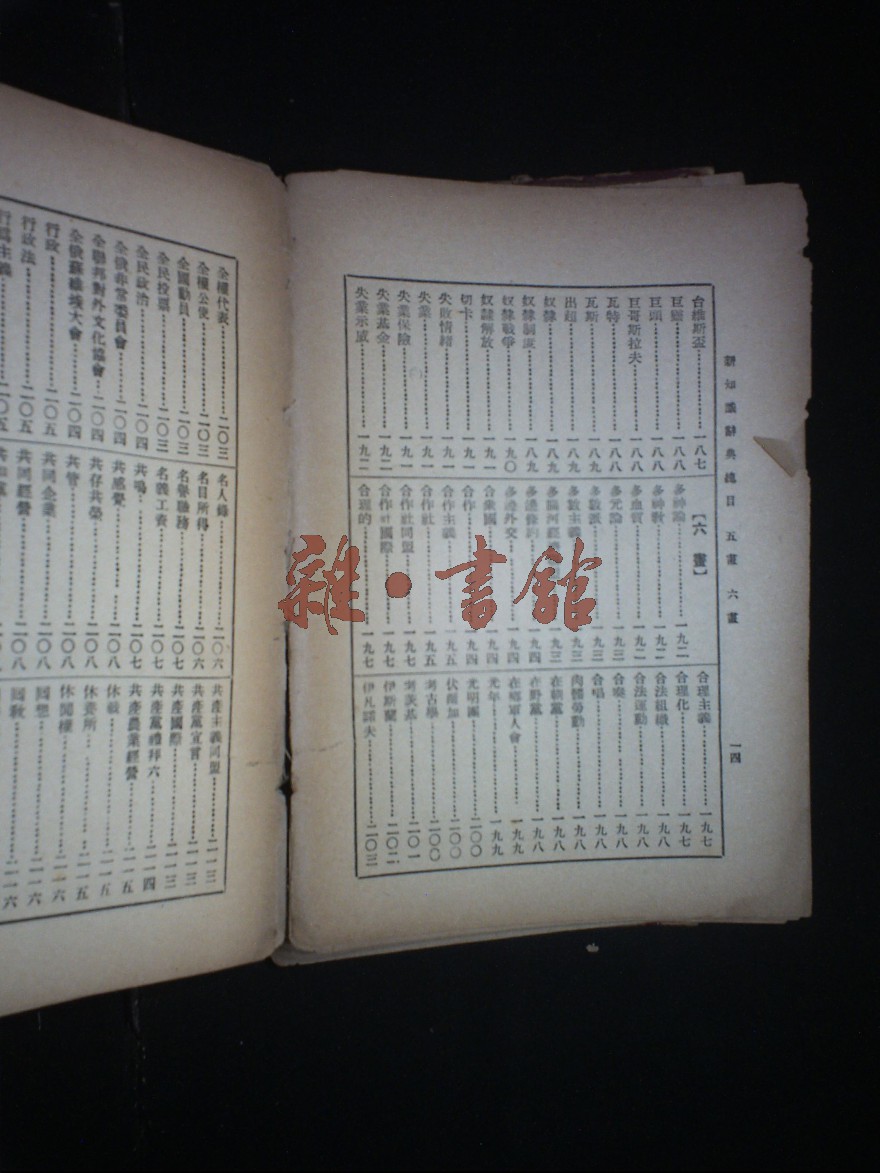 新知識辭典總目 五畫 六畫
一四
台維斯盃 一八七
巨頭 一八八
巨哥斯拉夫 一八八
瓦特 一八八
瓦斯 一八九
出超 一八九
奴隸 一八九
奴隸制度 一八九
奴隸戰爭 一九〇
奴隸解放 一九一
切卡 一九一
失敗情緒 一九一
失業 一九一
失業保險 一九一
失業基金 一九二
失業示威 一九二
【六畫】
多神論 一九二
多神教 一九二
多血質 一九二
多元論 一九三
多數派 一九三
多數主義 一九三
多邊條約 一九四
多邊外交 一九四
合衆國 一九四
合作 一九四
合作主義 一九五
合作社 一九五
合作社同盟 一九七
合作社國際 一九七
合理的 一九七
合理主義 一九七
合理化 一九七
合法組織 一九八
合法運動 一九八
合奏 一九八
合唱 一九八
肉體勞動 一九八
在朝黨 一九八
在野黨 一九八
在鄉軍人會 一九九
光年 一九九
光明團 二〇〇
伏爾加 二〇〇
考古學 二〇〇
考茨基 二〇一
伊斯蘭 二〇二
伊凡諾夫 二〇三
全權代表 二〇三
全權公使 二〇三
全國動員 二〇三
全民投票 二〇三
全民政治 二〇四
全俄非常委員會 二〇四
全聯邦對外文化協會 二〇四
全俄蘇維埃大會 二〇四
行政 二〇五
行政法 二〇五
行爲主義 二〇五
名人錄 二〇六
名目所得 二〇六
名譽職務 二〇七
名義工資 二〇七
共鳴 二〇七
共感覺 二〇八
共存共榮 二〇八
共管 二〇八
共同企業 二〇八
共同經營 二〇八
共產主義同盟 二一三
共產黨宣言 二一三
共產國際 二一三
共產黨禮拜六 二一四
共產農業經營 二一五
休戰 二一五
休養所 二一五
休閒權 二一六
回想 二一六
回教 二一六
雜·書館